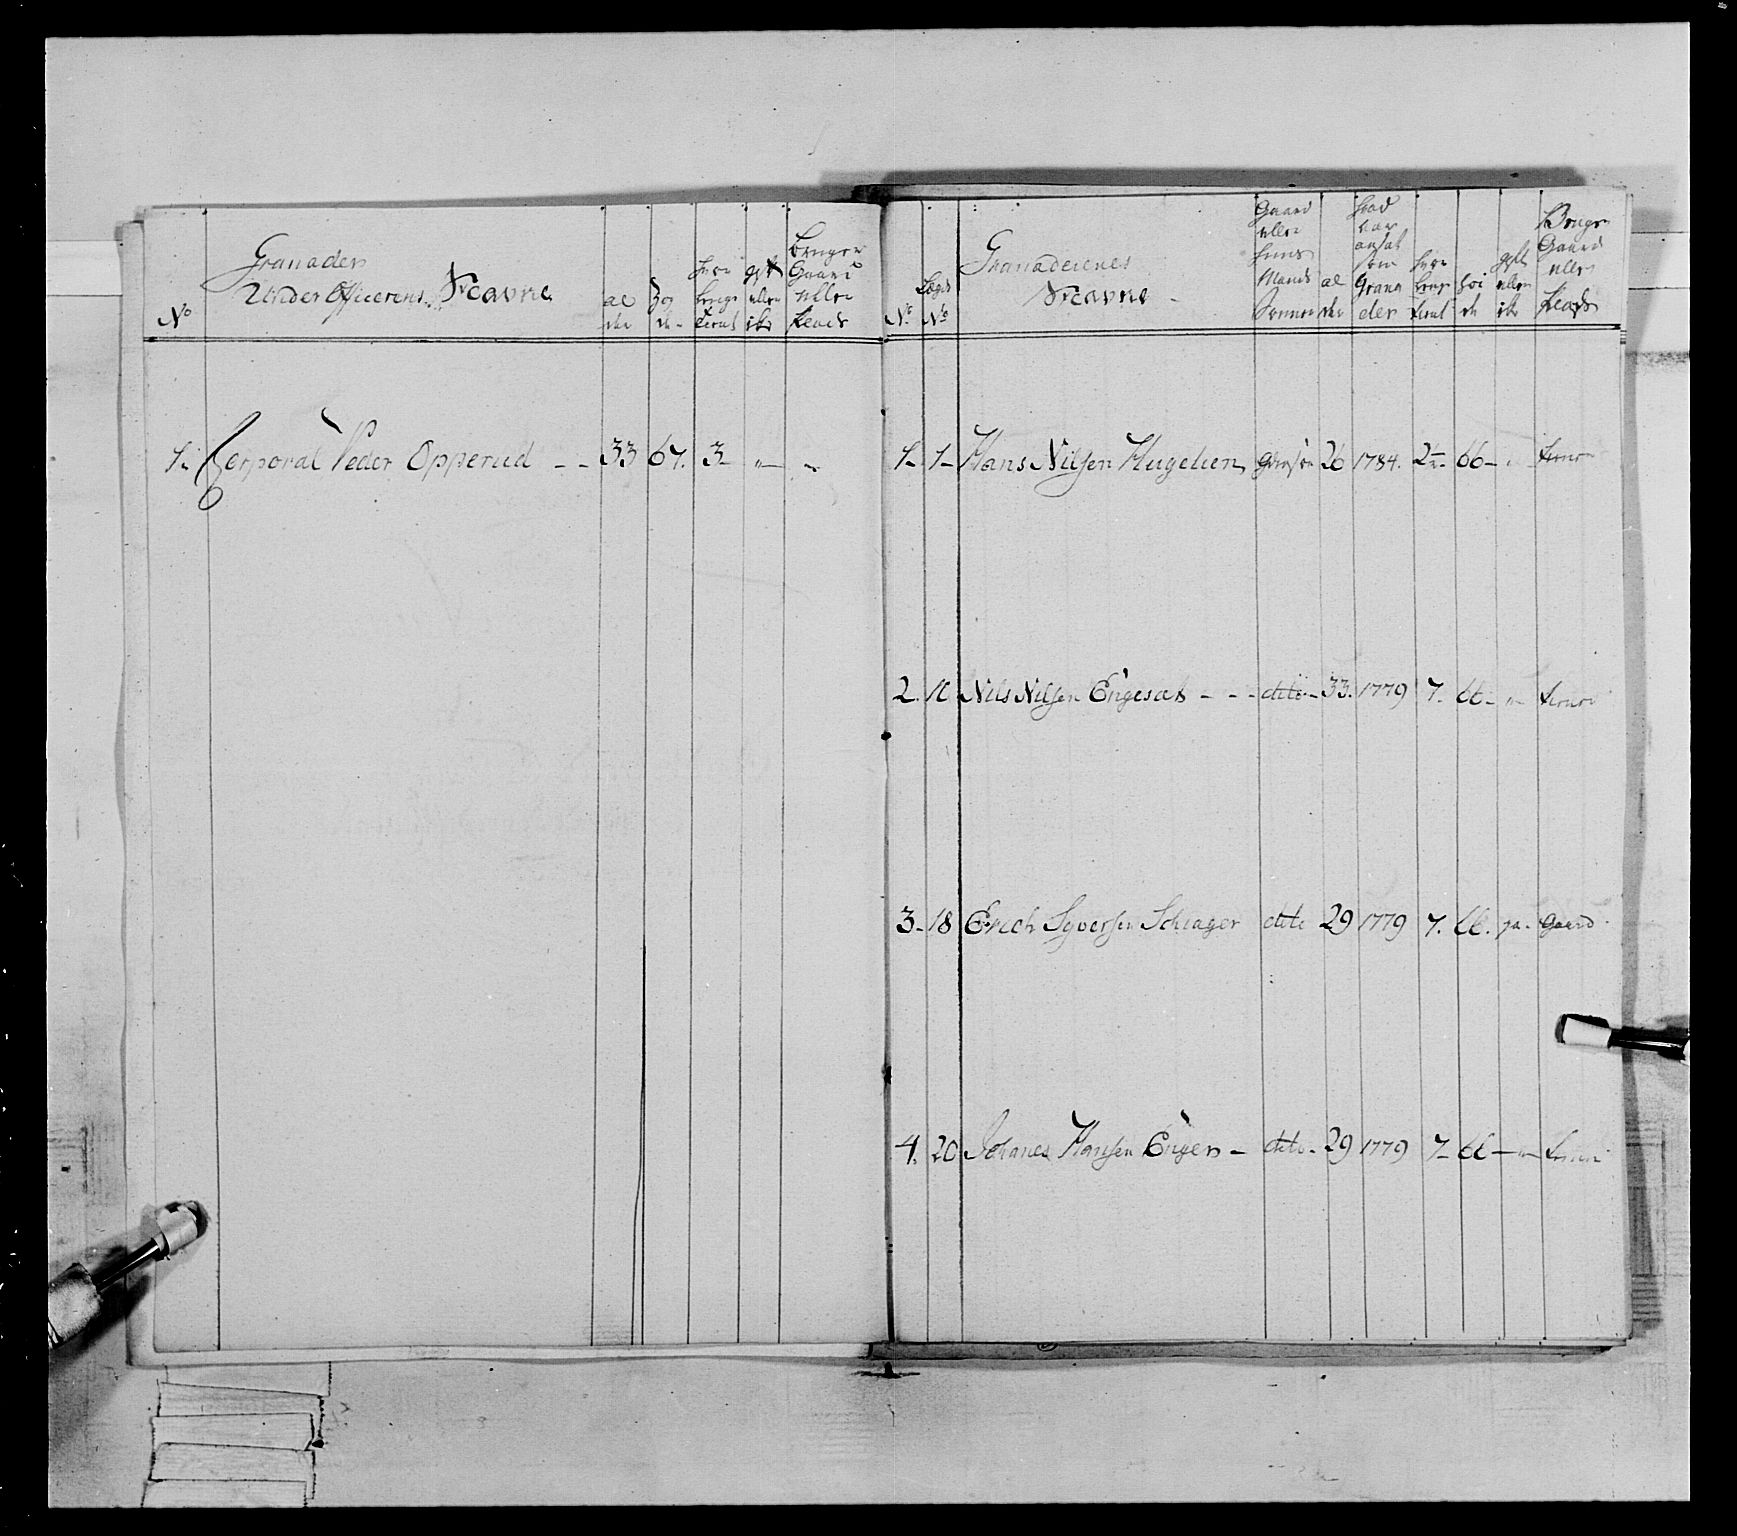 No
Granader
Under Officerens Navne
al
der
Hvor
længe
tient
gift
eller
ikke
bruger
Gaard
eller
Plads
1. Corporal Peder Opperud - - 33 67. 3 - " - "
No.
Lægds
No
Granaderernes
Navne -
Gaard
eller
Huus
Mands
Sønner
al
der
Hvad
aar
ansat
som
Grana
der
Hvor
længe
tient
Høi
de
gift
eller
ikke
Bruger
Gaard
eller
Plads
1. 1 - Hans Nilsen Hugelien 26 1784. 2 66 -
2. Nils Nilsen Engesæt - - - dito - 33. 1779 7. 66 - " -
3. 18 Erich Syversen Schiager dito 29 1779 7. 66. ja. Gaard
4. 20 Johanes Hansen Engen - dito - 29 1779 7 - 66 - " -